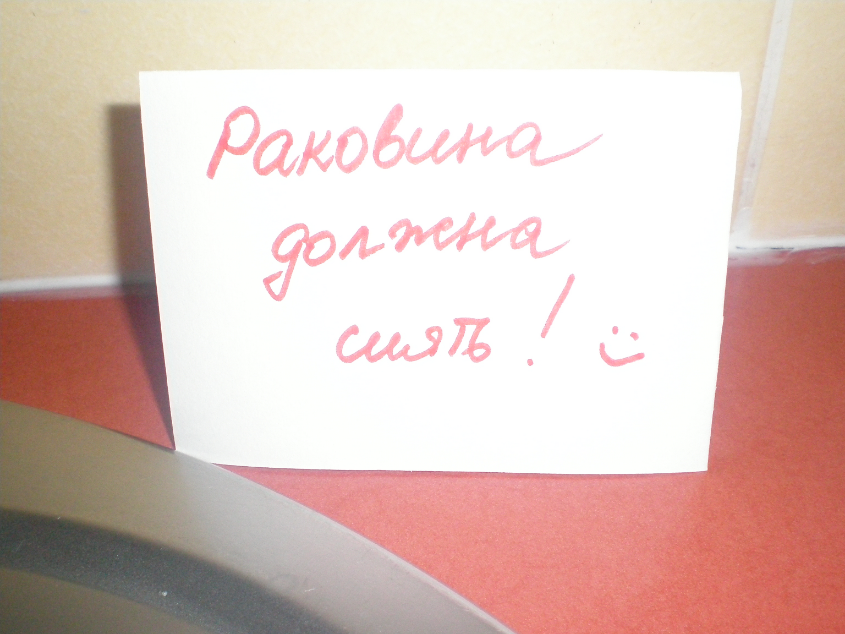 Раковина
должна
сиять! :)